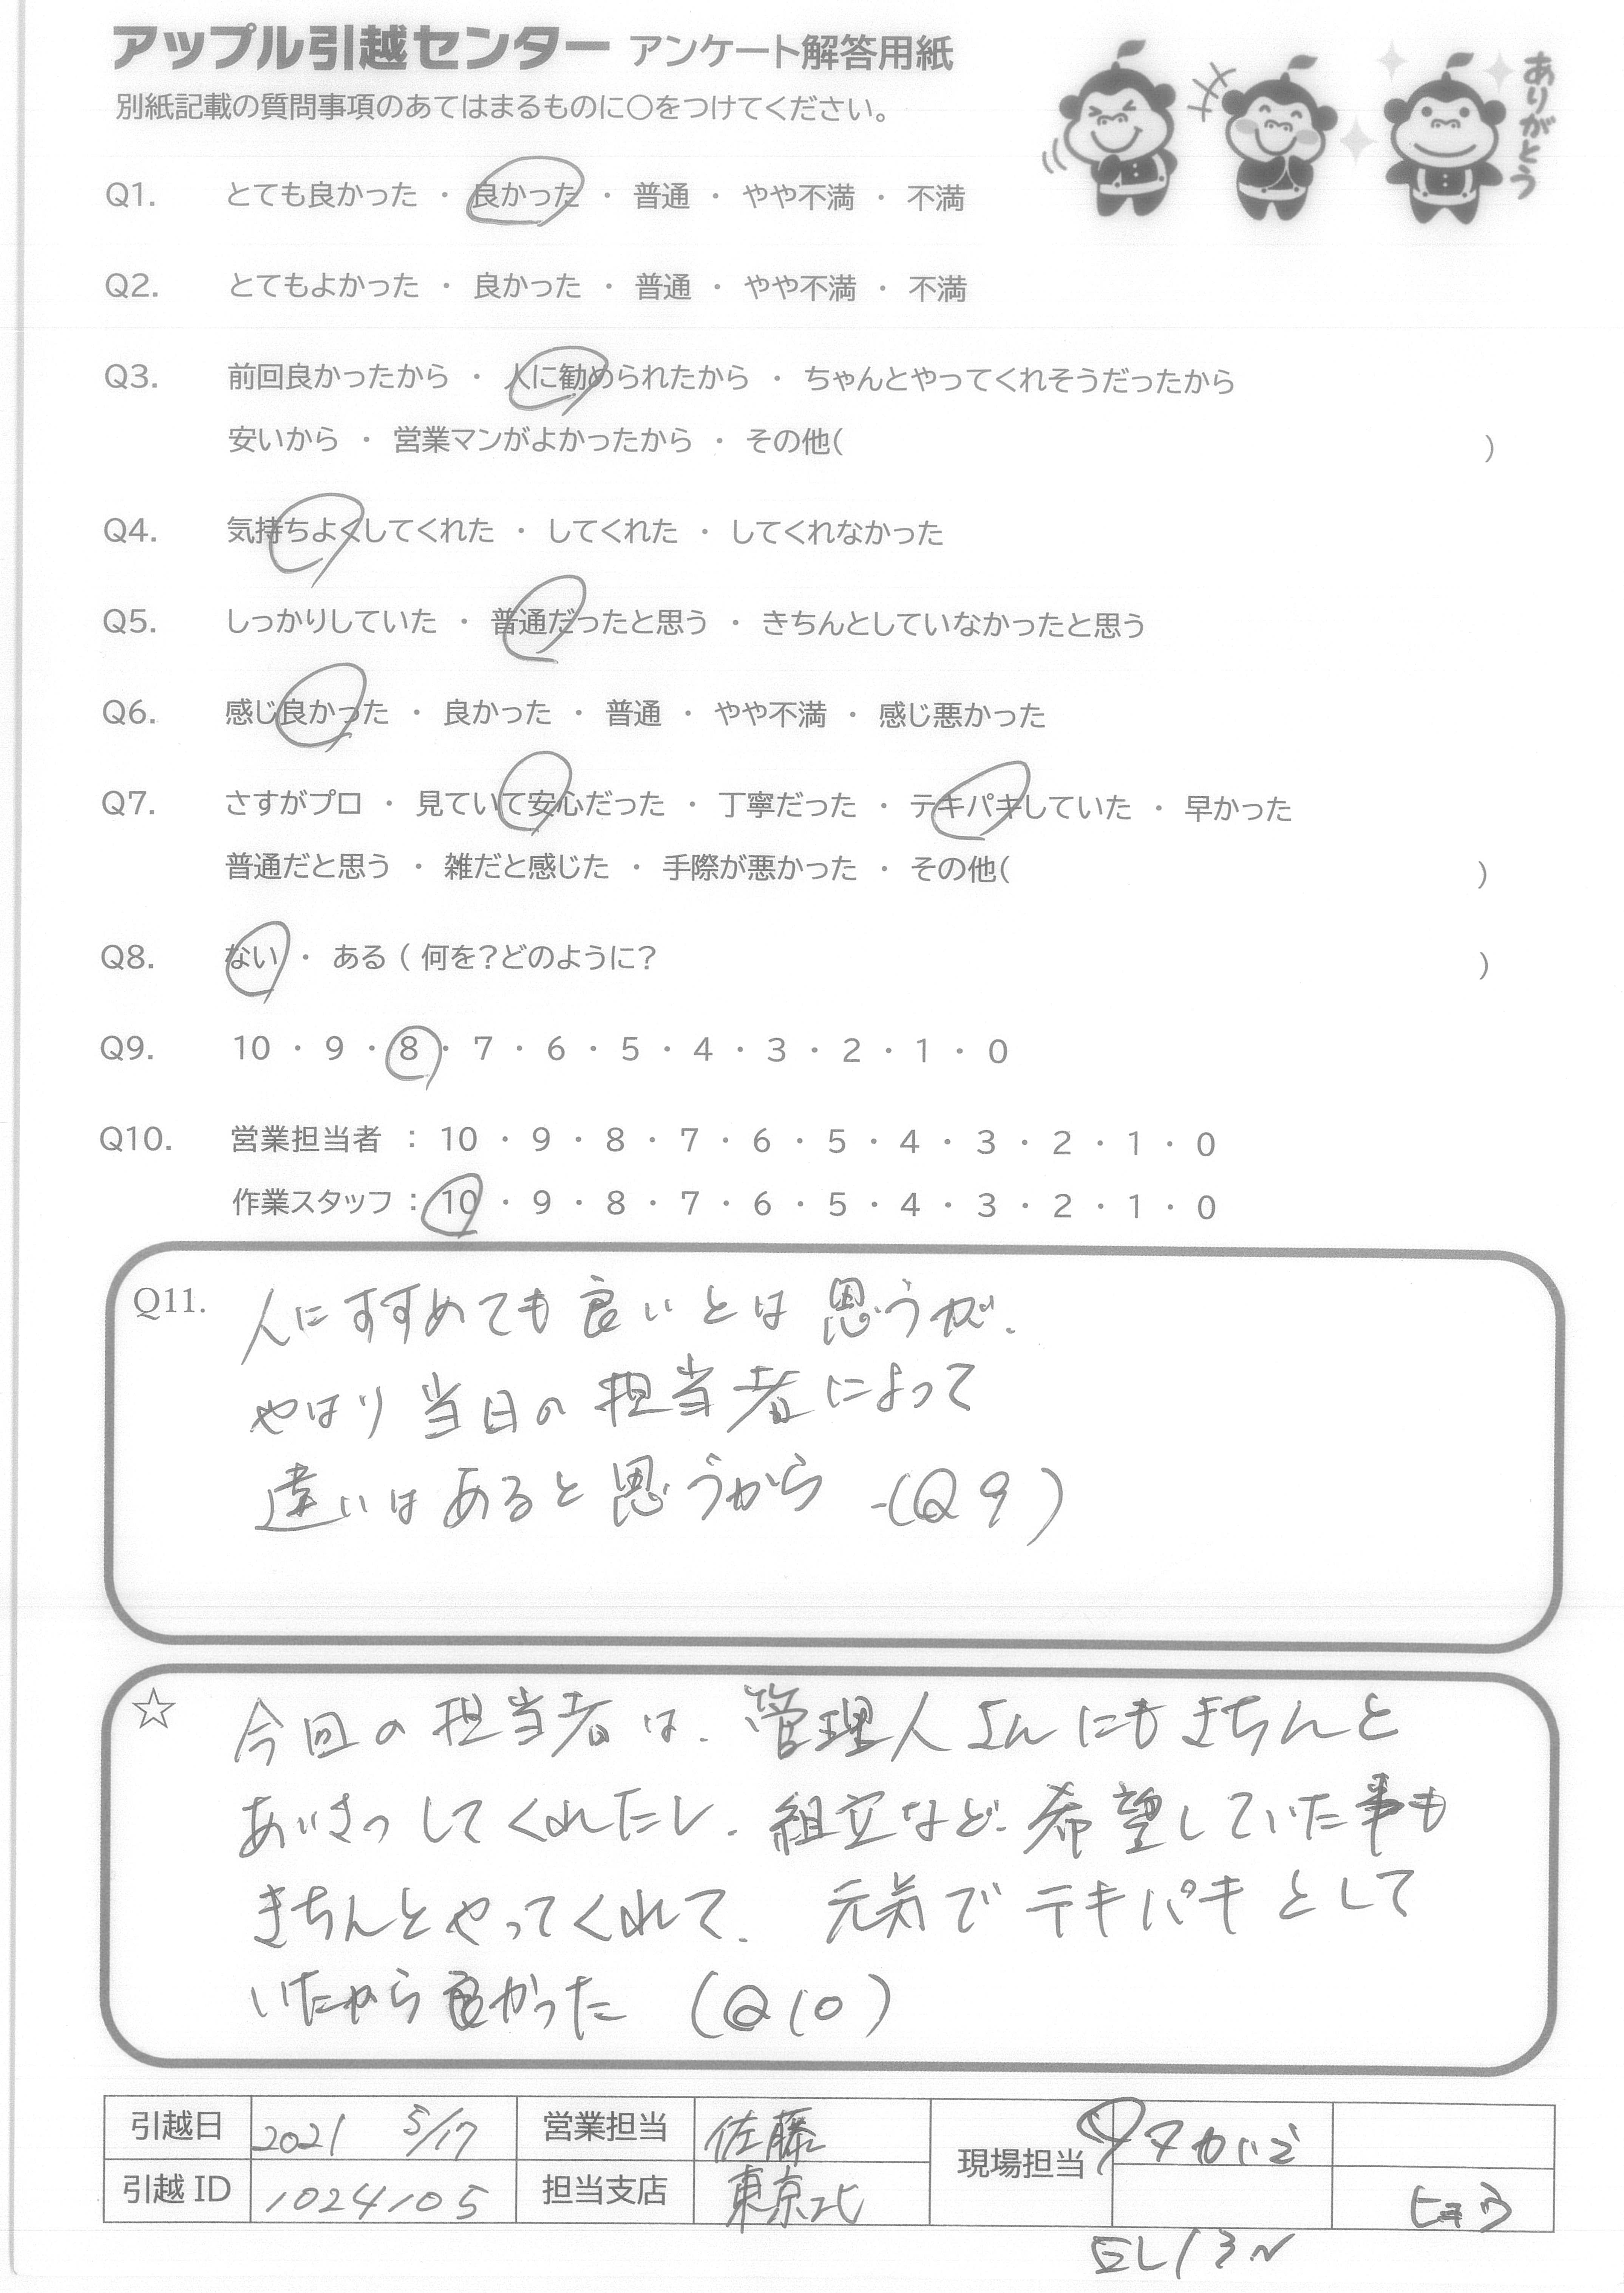 アップル引越センター アンケート解答用紙
別紙記載の質問事項のあてはまるものに〇をつけてください。
ありがとう
Q1. とても良かった ・ 良かった ・ 普通 ・ やや不満 ・ 不満
Q2. とてもよかった ・ 良かった ・ 普通 ・ やや不満 ・ 不満
Q3. 前回良かったから ・ 人に勧められたから ・ ちゃんとやってくれそうだったから
安いから ・ 営業マンがよかったから ・ その他( )
Q4. 気持ちよくしてくれた ・ してくれた ・ してくれなかった
Q5. しっかりしていた ・ 普通だったと思う ・ きちんとしていなかったと思う
Q6. 感じ良かった ・ 良かった ・ 普通 ・ やや不満 ・ 感じ悪かった
Q7. さすがプロ ・ 見ていて安心だった ・ 丁寧だった ・ テキパキしていた ・ 早かった
普通だと思う ・ 雑だと感じた ・ 手際が悪かった ・ その他( )
Q8. ない ・ ある ( 何を?どのように? )
Q9. 10 ・ 9 ・ 8 ・ 7 ・ 6 ・ 5 ・ 4 ・ 3 ・ 2 ・ 1 ・ 0
Q10. 営業担当者 : 10 ・ 9 ・ 8 ・ 7 ・ 6 ・ 5 ・ 4 ・ 3 ・ 2 ・ 1 ・ 0
作業スタッフ : 10 ・ 9 ・ 8 ・ 7 ・ 6 ・ 5 ・ 4 ・ 3 ・ 2 ・ 1 ・ 0
Q11. 人にすすめても良いとは思うが、
やはり当日の担当者によって
違いはあると思うから -(Q9)
☆ 今回の担当者は、管理人さんにもきちんと
あいさつしてくれたし、組立など、希望していた事も
きちんとやってくれて、元気でテキパキとして
いたから良かった (Q10)
引越日 2021 5/17 営業担当 佐藤 現場担当
引越 ID 1024105 担当支店 東京北